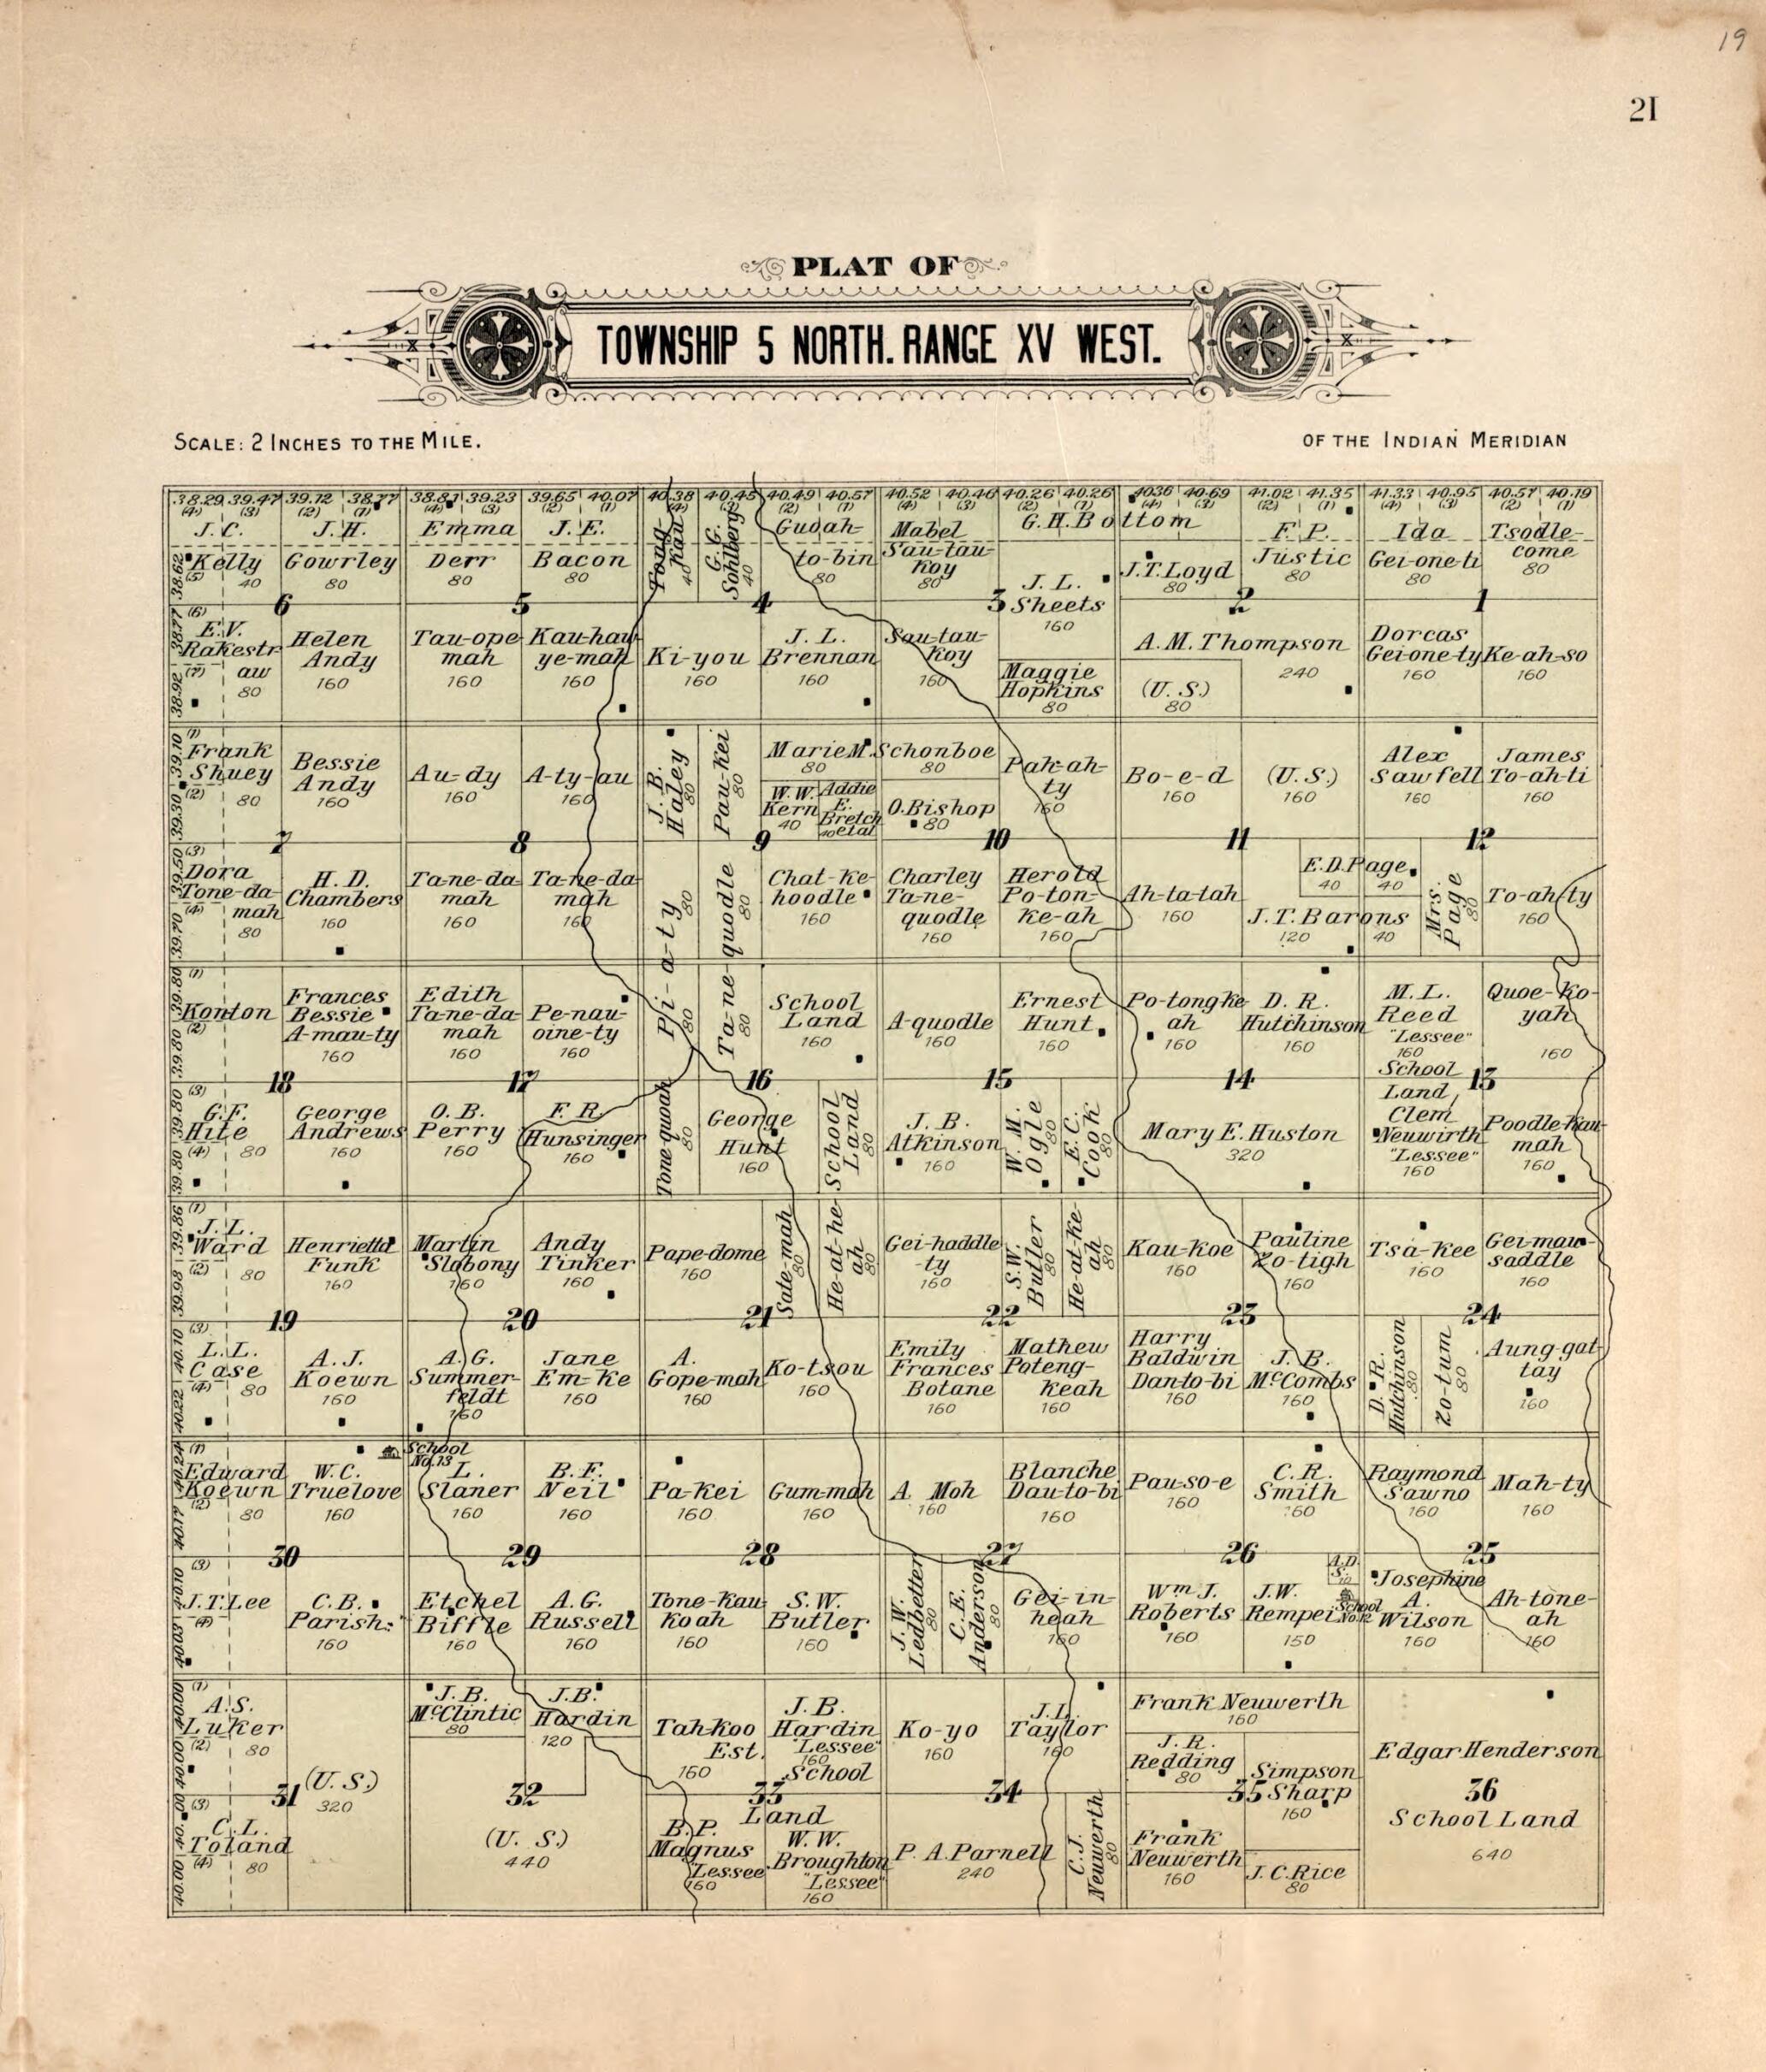 19
21
PLAT OF
TOWNSHIP 5 NORTH. RANGE XV WEST.
SCALE: 2 INCHES TO THE MILE.
OF THE INDIAN MERIDIAN
38.29 39.47 39.12 38.77 38.87 39.23 39.65 40.07 40.38 40.45 40.49 40.57 40.52 40.46 40.26 40.26 4036 40.69 41.02 41.35 41.33 40.95 40.57 40.19
(4) (3) (2) (1) (4) (3) (2) (1) (4) (2) (1) (4) (3) (2) (1) (4) (3) (2) (1) (4) (3) (2) (1)
J. C. Kelly 40
J. H. Gowrley 80
Emma Derr 80
J. E. Bacon 80
Tong Kau 40
G. G. Sohlberg 40
Guoah-to-bin 80
Mabel Sau-tau-koy 80
G. H. Bottom
J. L. Sheets 160
J. T. Loyd 80
F. P. Justic 80
Ida Gei-one-ti 80
Tsodle-come 80
38.62
(5)
6
5
4
3
2
1
38.77
(6)
E. V. Rakestraw 80
(7)
38.92
Helen Andy 160
Tau-ope mah 160
Kau-hau-ye-mah 160
Ki-you 160
J. L. Brennan 160
Sau-tau-koy 160
Maggie Hopkins 80
A. M. Thompson 240
(U. S.) 80
Dorcas Gei-one-ty 160
Ke-ah-so 160
39.10
(1)
Frank Shuey 80
(2)
39.30
Bessie Andy 160
Au-dy 160
A-ty-au 160
J. B. Haley 80
Pau-kei 80
Marie M. Schonboe
80
80
W. W. Kern 40
Addie E. Bretch etal 40
O. Bishop 80
Pah-ah-ty 160
Bo-e-d 160
(U. S.) 160
Alex Sawfell 160
James To-ah-ti 160
7
8
9
10
11
12
39.50
(3)
Dora Tone-da-mah 80
(4)
39.70
H. D. Chambers 160
Ta-ne-da-mah 160
Ta-ne-da-mah 160
Pi-a-ty 80 80
Ta-ne-quodle 80 80
Chat-ke-hoodle 160
Charley Ta-ne-quodle 160
Herold Po-ton-ke-ah 160
Ah-ta-tah 160
E. D. Page
40 40
J. T. Barons
120 40
Mrs. Page 80
To-ah-ty 160
39.80
(1)
Konton
(2)
39.80
Frances Bessie A-mau-ty 160
Edith Ta-ne-da-mah 160
Pe-nau-oine-ty 160
School Land 160
A-quodle 160
Ernest Hunt 160
Po-tong-ke-ah 160
D. R. Hutchinson 160
M. L. Reed "Lessee" 160
School Land
Quoe-ko-yah 160
18
17
16
15
14
13
39.80
(3)
G. F. Hite 80
(4)
39.80
George Andrews 160
O. B. Perry 160
F. R. Hunsinger 160
Tone-quoah 80
George Hunt 160
School Land 80
J. B. Atkinson 160
W. M. Ogle 80
E. C. Cook 80
Mary E. Huston 320
Clem Neuwirth "Lessee" 160
Poodle-kau-mah 160
39.86
(1)
J. L. Ward 80
(2)
39.98
Henrietta Funk 160
Martin Slabony 160
Andy Tinker 160
Pape-dome 160
Sate-mah 80
He-at-he-ah 80
Gei-haddle-ty 160
S. W. Butler 80
He-at-ke-ah 80
Kau-koe 160
Pauline Zo-tigh 160
Tsa-kee 160
Gei-mau-saddle 160
19
20
21
22
23
24
40.10
(3)
L. L. Case 80
(4)
40.22
A. J. Koewn 160
A. G. Summerfeldt 160
Jane Em-ke 160
A. Gope-mah 160
Ko-tsou 160
Emily Frances Botane 160
Mathew Poteng-keah 160
Harry Baldwin Dan-to-bi 160
J. B. McCombs 160
D. R. Hutchinson 80
Zo-tum 80
Aung-gat-tay 160
40.24
(1)
Edward Koewn 80
(2)
40.17
W. C. Truelove 160
School No. 13
L. Slaner 160
B. F. Neil 160
Pa-kei 160
Gum-mah 160
A. Moh 160
Blanche Dau-to-bi 160
Pau-so-e 160
C. R. Smith 160
Raymond Sawno 160
Mah-ty 160
30
29
28
27
26
25
40.10
(3)
J. T. Lee
(4)
40.03
C. B. Parish 160
Etchel Biffle 160
A. G. Russell 160
Tone-kau-koah 160
S. W. Butler 160
J. W. Ledbetter 80
C. E. Anderson 80
Gei-in-heah 160
Wm J. Roberts 160
J. W. Rempei 150
A. D. S. 10
School No. 12
Josephine A. Wilson 160
Ah-tone-ah 160
40.00
(1)
A. S. Luker 80
(2)
40.00
(U. S.) 320
J. B. McClintic 80
J. B. Hardin 120
Tah-koo Est. 160
J. B. Hardin "Lessee" 160
School Land
Ko-yo 160
J. L. Taylor 160
Frank Neuwerth 160
J. R. Redding 80
Simpson Sharp 160
Edgar Henderson
31
32
33
34
35
36
School Land
640
40.00
(3)
C. L. Toland 80
(4)
40.00
(U. S.) 440
B. P. Magnus "Lessee" 160
W. W. Broughton "Lessee" 160
P. A. Parnell 240
C. J. Neuwerth 80
Frank Neuwerth 160
J. C. Rice 80